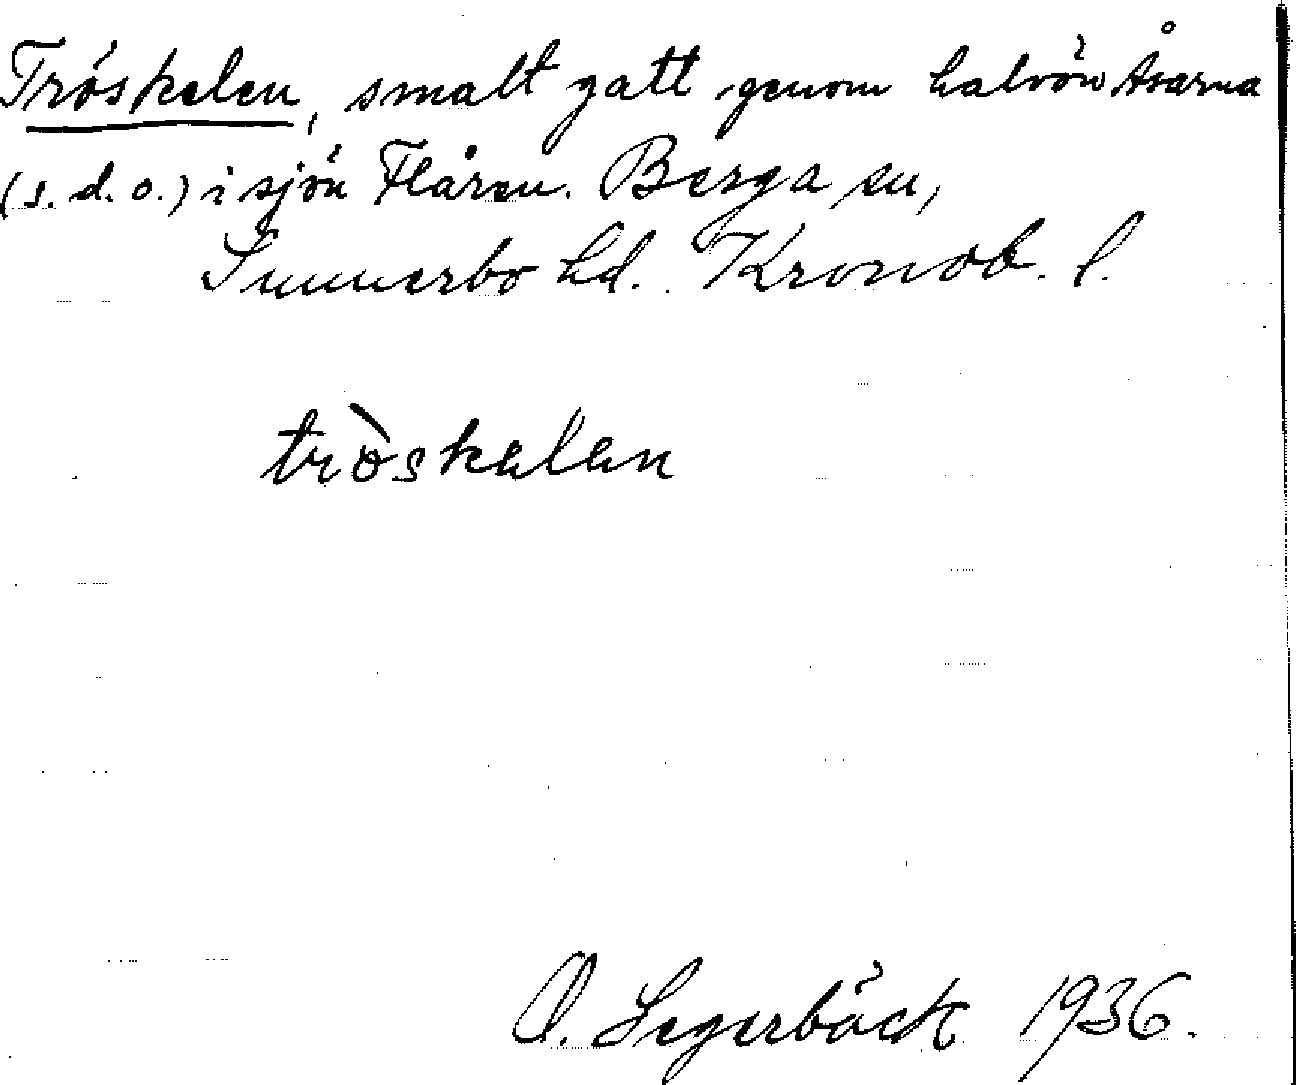 Tröskelen, smalt gatt genom halvön Åsarna
(s. d. o.) i sjön Flåren. Berga sn,
Sunnerbo hd. Kronob. l.
tròskalan
O. Segerbäck 1936.